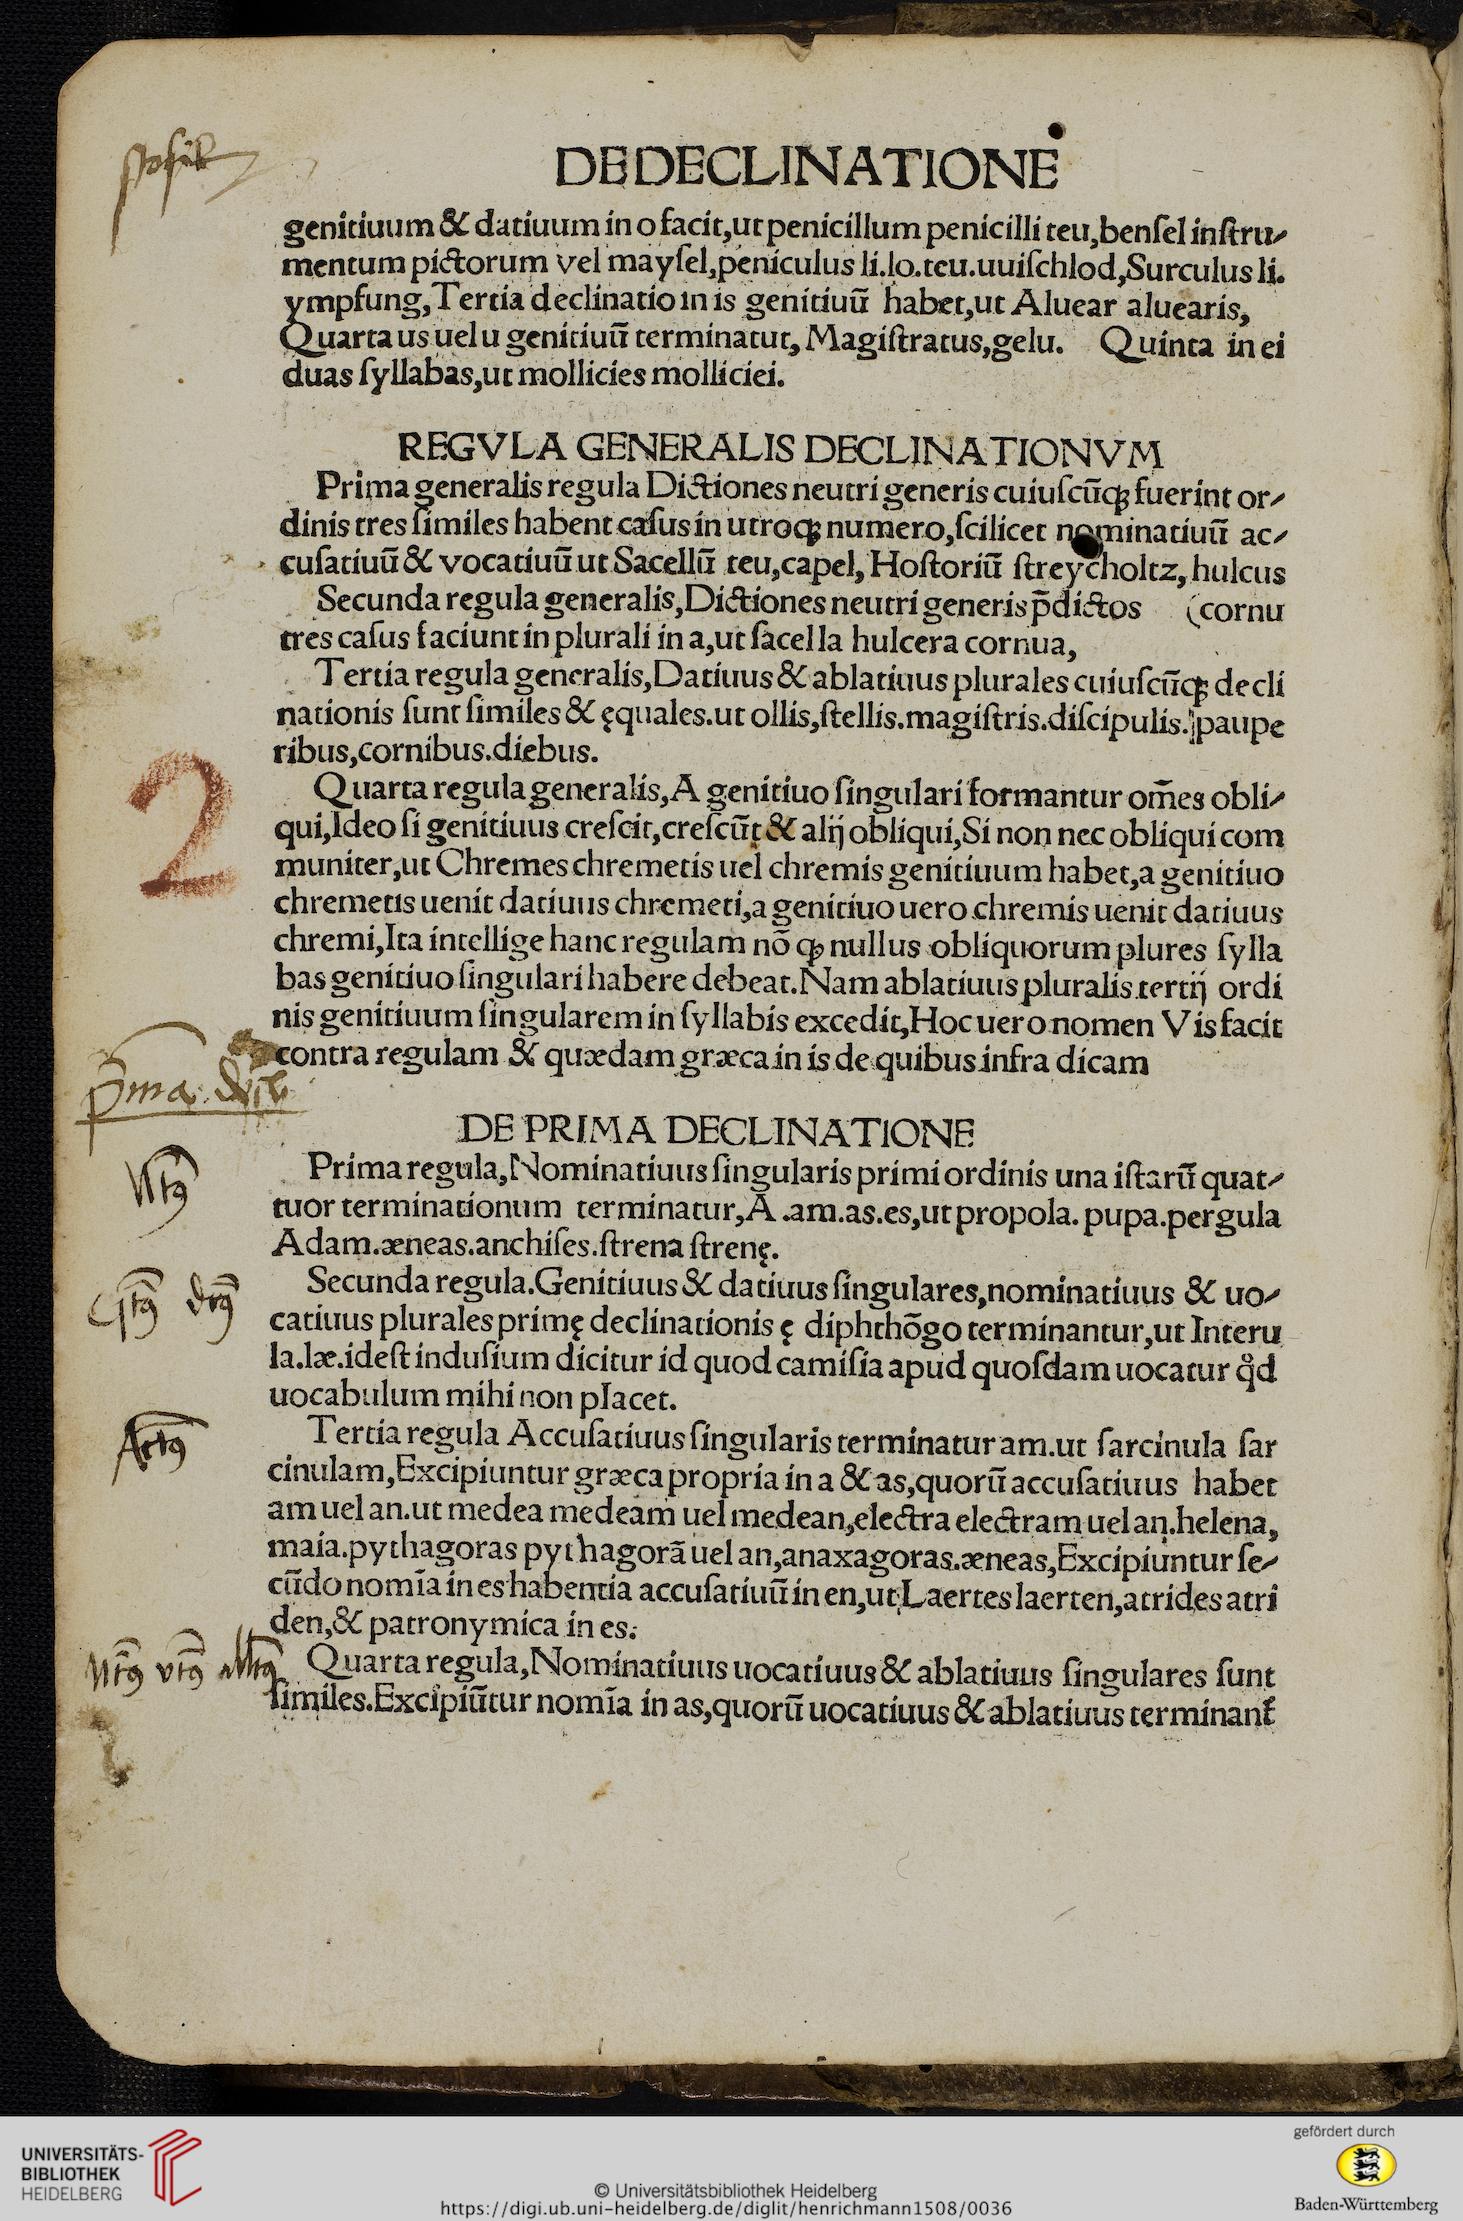 DE DECLINATIONE
genitiuum & datiuum in o facit,ut penicillum penicilli teu,benſel inſtru⸗
mentum pictorum vel mayſel,peniculus li.lo.teu.uuiſchlod,Surculus li.
ympfung,Tertia declinatio in is genitiuū habet,ut Aluear aluearis,
Quarta us uel u genitiuū terminatut, Magiſtratus,gelu. Quinta in ei
duas ſyllabas,ut mollicies molliciei.
REGVLA GENERALIS DECLINATIONVM
Prima generalis regula Dictiones neutri generis cuiuſcūqꝫ fuerint or⸗
dinis tres ſimiles habent caſus in utroqꝫ numero,ſcilicet nominatiuū ac⸗
cuſatiuū & vocatiuū ut Sacellū teu,capel, Hoſtoriū ſtreycholtz, hulcus
Secunda regula generalis,Dictiones neutri generis p̄dictos (cornu
tres caſus faciunt in plurali in a,ut ſacella hulcera cornua,
Tertia regula generalis,Datiuus & ablatiuus plurales cuiuſcūqꝫ decli
nationis ſunt ſimiles & ęquales.ut ollis,ſtellis.magiſtris.diſcipulis.paupe
ribus,cornibus.diebus.
2
Quarta regula generalis,A genitiuo ſingulari formantur om̄es obli⸗
qui,Ideo ſi genitiuus creſcit,creſcūt & alij obliqui,Si non nec obliqui com
muniter,ut Chremes chremetis uel chremis genitiuum habet,a genitiuo
chremetis uenit datiuus chremeti,a genitiuo uero chremis uenit datiuus
chremi,Ita intellige hanc regulam nō ꝙ nullus obliquorum plures ſylla
bas genitiuo ſingulari habere debeat.Nam ablatiuus pluralis tertij ordi
nis genitiuum ſingularem in ſyllabis excedit,Hoc uero nomen Vis facit
contra regulam & quædam græca in is de quibus infra dicam
DE PRIMA DECLINATIONE
Prima regula,Nominatiuus ſingularis primi ordinis una iſtarū quat⸗
tuor terminationum terminatur,A .am.as.es,ut propola. pupa.pergula
Adam.æneas.anchiſes.ſtrena ſtrenę.
Secunda regula.Genitiuus & datiuus ſingulares,nominatiuus & uo⸗
catiuus plurales primę declinationis ę diphthōgo terminantur,ut Interu
la.læ.ideſt induſium dicitur id quod camiſia apud quoſdam uocatur qd̊
uocabulum mihi non placet.
Tertia regula Accuſatiuus ſingularis terminatur am.ut ſarcinula ſar
cinulam,Excipiuntur græca propria in a & as,quorū accuſatiuus habet
am uel an.ut medea medeam uel medean,electra electram uel an.helena,
maia.pythagoras pythagorā uel an,anaxagoras.æneas,Excipiuntur ſe⸗
cūdo nomīa in es habentia accuſatiuū in en,ut Laertes laerten,atrides atri
den,& patronymica in es.
Quarta regula,Nominatiuus uocatiuus & ablatiuus ſingulares ſunt
ſimiles.Excipiūtur nomīa in as,quorū uocatiuus & ablatiuus terminant᷑
UNIVERSITÄTS-
BIBLIOTHEK
HEIDELBERG
© Universitätsbibliothek Heidelberg
https://digi.ub.uni-heidelberg.de/diglit/henrichmann1508/0036
gefördert durch
Baden-Württemberg